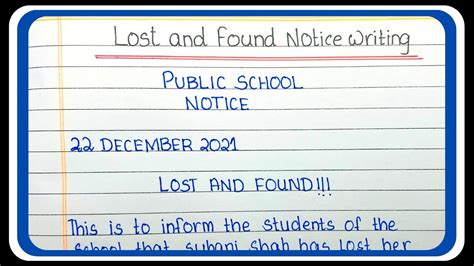 Lost and Found Notice Writing
PUBLIC SCHOOL
NOTICE
22 DECEMBER 2021
LOST AND FOUND!!!
This is to inform the students of the
school that suhani shah has lost her